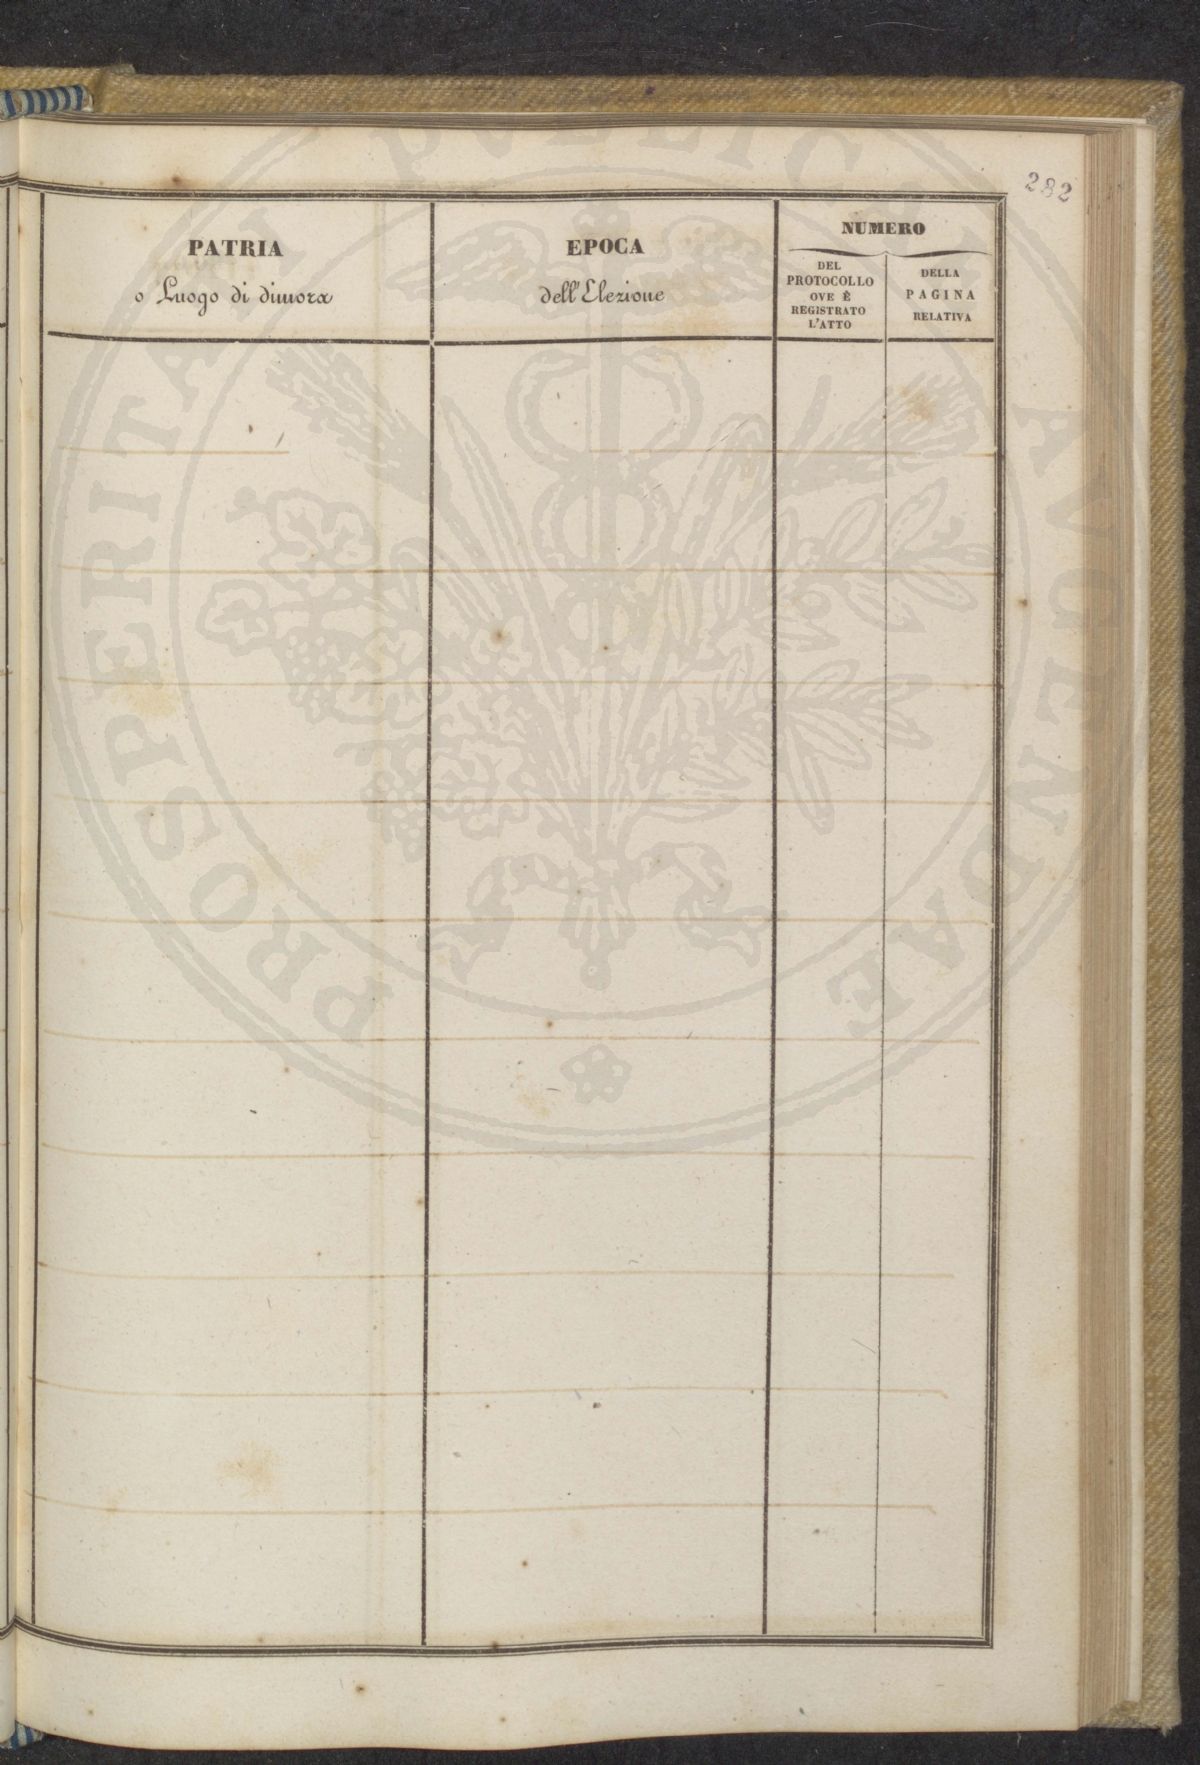 282
PATRIA
o Luogo di dimora
EPOCA
dell'Elezione
NUMERO
DEL
PROTOCOLLO
OVE È
REGISTRATO
L'ATTO
DELLA
PAGINA
RELATIVA
PROSPERITATI PUBLICAE AVGENDAE